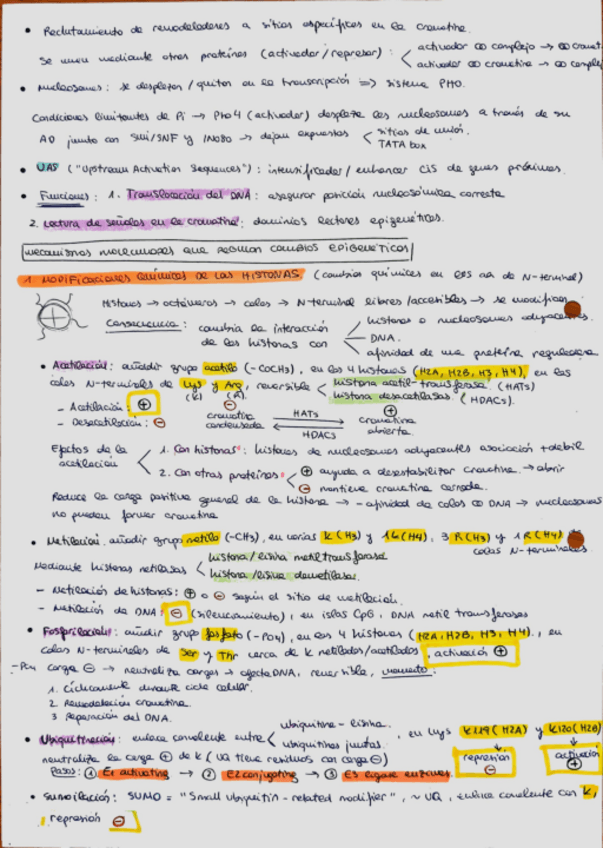 • Reclutamiento de remodeladores a sitios específicos en la cromatina.
Se unen mediante otras proteínas (activador/represor): activador ∞ complejo → ∞ cromat
activador ∞ cromatina → ∞ complej
• Nucleosomas: se desplazan / quitan en la transcripción => sistema PHO.
Condiciones limitantes de Pi → Pho4 (activador) desplaza los nucleosomas a través de su
AD junto con SWI/SNF y INO80 → dejan expuestos sitios de unión.
TATA box
• UAS ("Upstream Activation Sequences"): intensificador / enhancer cis de genes próximos.
• Funciones: 1. Translocación del DNA: asegurar posición nucleosómica correcta
2. Lectura de señales en la cromatina: dominios lectores epigenéticos.
MECANISMOS MOLECULARES QUE REGULAN CAMBIOS EPIGENÉTICOS
1. MODIFICACIONES QUÍMICAS DE LAS HISTONAS (cambios químicos en los aa de N-terminal)
Histonas → octámeros → colas → N-terminal libres/accesibles → se modifican
Consecuencia: cambia la interacción de las histonas con
histonas o nucleosomas adyacentes.
DNA.
afinidad de una proteína reguladora
• Acetilación: añadir grupo acetilo (-COCH3), en los 4 histonas (H2A, H2B, H3, H4), en las
colas N-terminales de Lys y Arg, reversible histona acetil-transferasa (HATs)
(K) (R) histona desacetilasas. (HDACs).
- Acetilación: ⊕
- Desacetilación: ⊖
⊖ cromatina condensada HATs HDACs ⊕ cromatina abierta
Efectos de la acetilación
1. Con histonas: histonas de nucleosomas adyacentes asociación + debil
2. Con otras proteínas ⊕ ayuda a desestabilizar cromatina → abrir
⊖ mantiene cromatina cerrada.
Reduce la carga positiva general de la histona → - afinidad de colas ∞ DNA → nucleosomas
no pueden formar cromatina
• Metilación: añadir grupo metilo (-CH3), en varias K (H3) y 1 K (H4), 3 R (H3) y 1 R (H4)
colas N-terminales
Mediante histonas metilasas histona/lisina metiltransferasa
histona/lisina demetilasa.
- Metilación de histonas: ⊕ o ⊖ según el sitio de metilación.
- Metilación de DNA: ⊖ (silenciamiento), en islas CpG, DNA metil transferasas
• Fosforilación: añadir grupo fosfato (-PO4), en los 4 histonas (H2A, H2B, H3, H4)., en
colas N-terminales de Ser y Thr cerca de K metilados/acetilados, activación ⊕
carga ⊖ → neutraliza cargas → afecta DNA, reversible, momento:
1. Cíclicamente durante ciclo celular.
2. Remodelación cromatina.
3 Reparación del DNA.
• Ubiquitinación: enlace covalente entre ubiquitina - lisina.
ubiquitinas juntas.
, en Lys K119 (H2A) y K120 (H2B)
neutraliza la carga ⊕ de K (UQ tiene residuos con carga ⊖) represión ⊖ activación ⊕
Pasos: ① E1 activating → ② E2 conjugating → ③ E3 ligase enzimes.
• Sumoilación: SUMO = "Small ubiquitin-related modifier", ~ UQ, enlace covalente con K,
represión ⊖